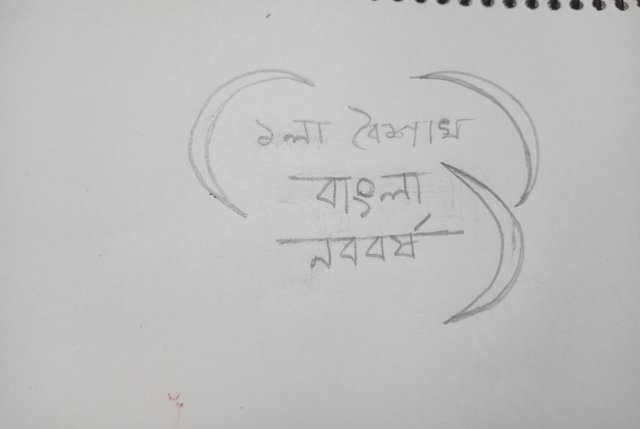 ১লা বৈশাখ
বাংলা
নববর্ষ